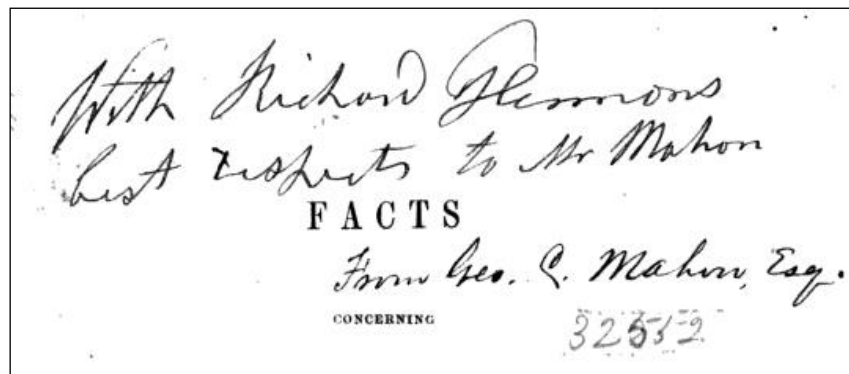 With Richard Flemmons
best respects to Mr Mahon
FACTS
From Geo. C. Mahon, Esq.
CONCERNING
32512